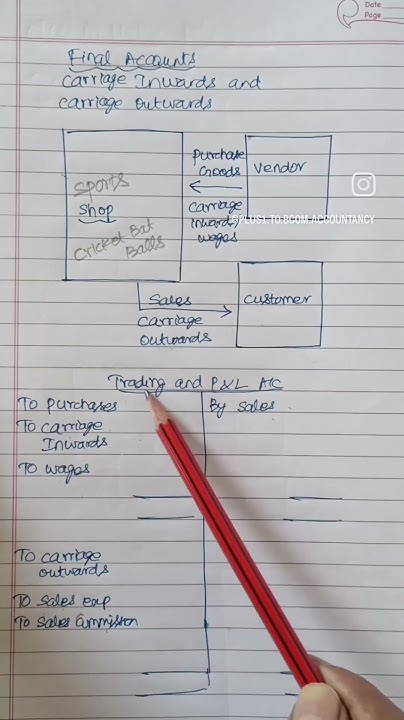 Date
Page
Final Accounts
Carriage Inwards and
carriage outwards
Purchase
Goods
Vendor
Sports
Shop
Cricket Bat
Balls
Carriage
Inwards
wages
@PLUS1.TO.BCOM.ACCOUNTANCY
Sales
Carriage
Outwards
Customer
Trading and P&L A/C
To Purchases
By Sales
To Carriage
Inwards
To wages
To carriage
outwards
To Sales exp
To Sales Commission